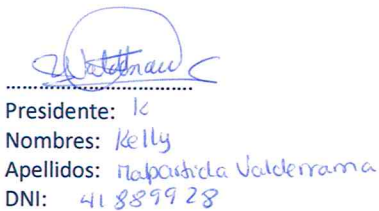 Presidente: K
Nombres: Kelly
Apellidos: Malpartida Valderrama
DNI: 41889928